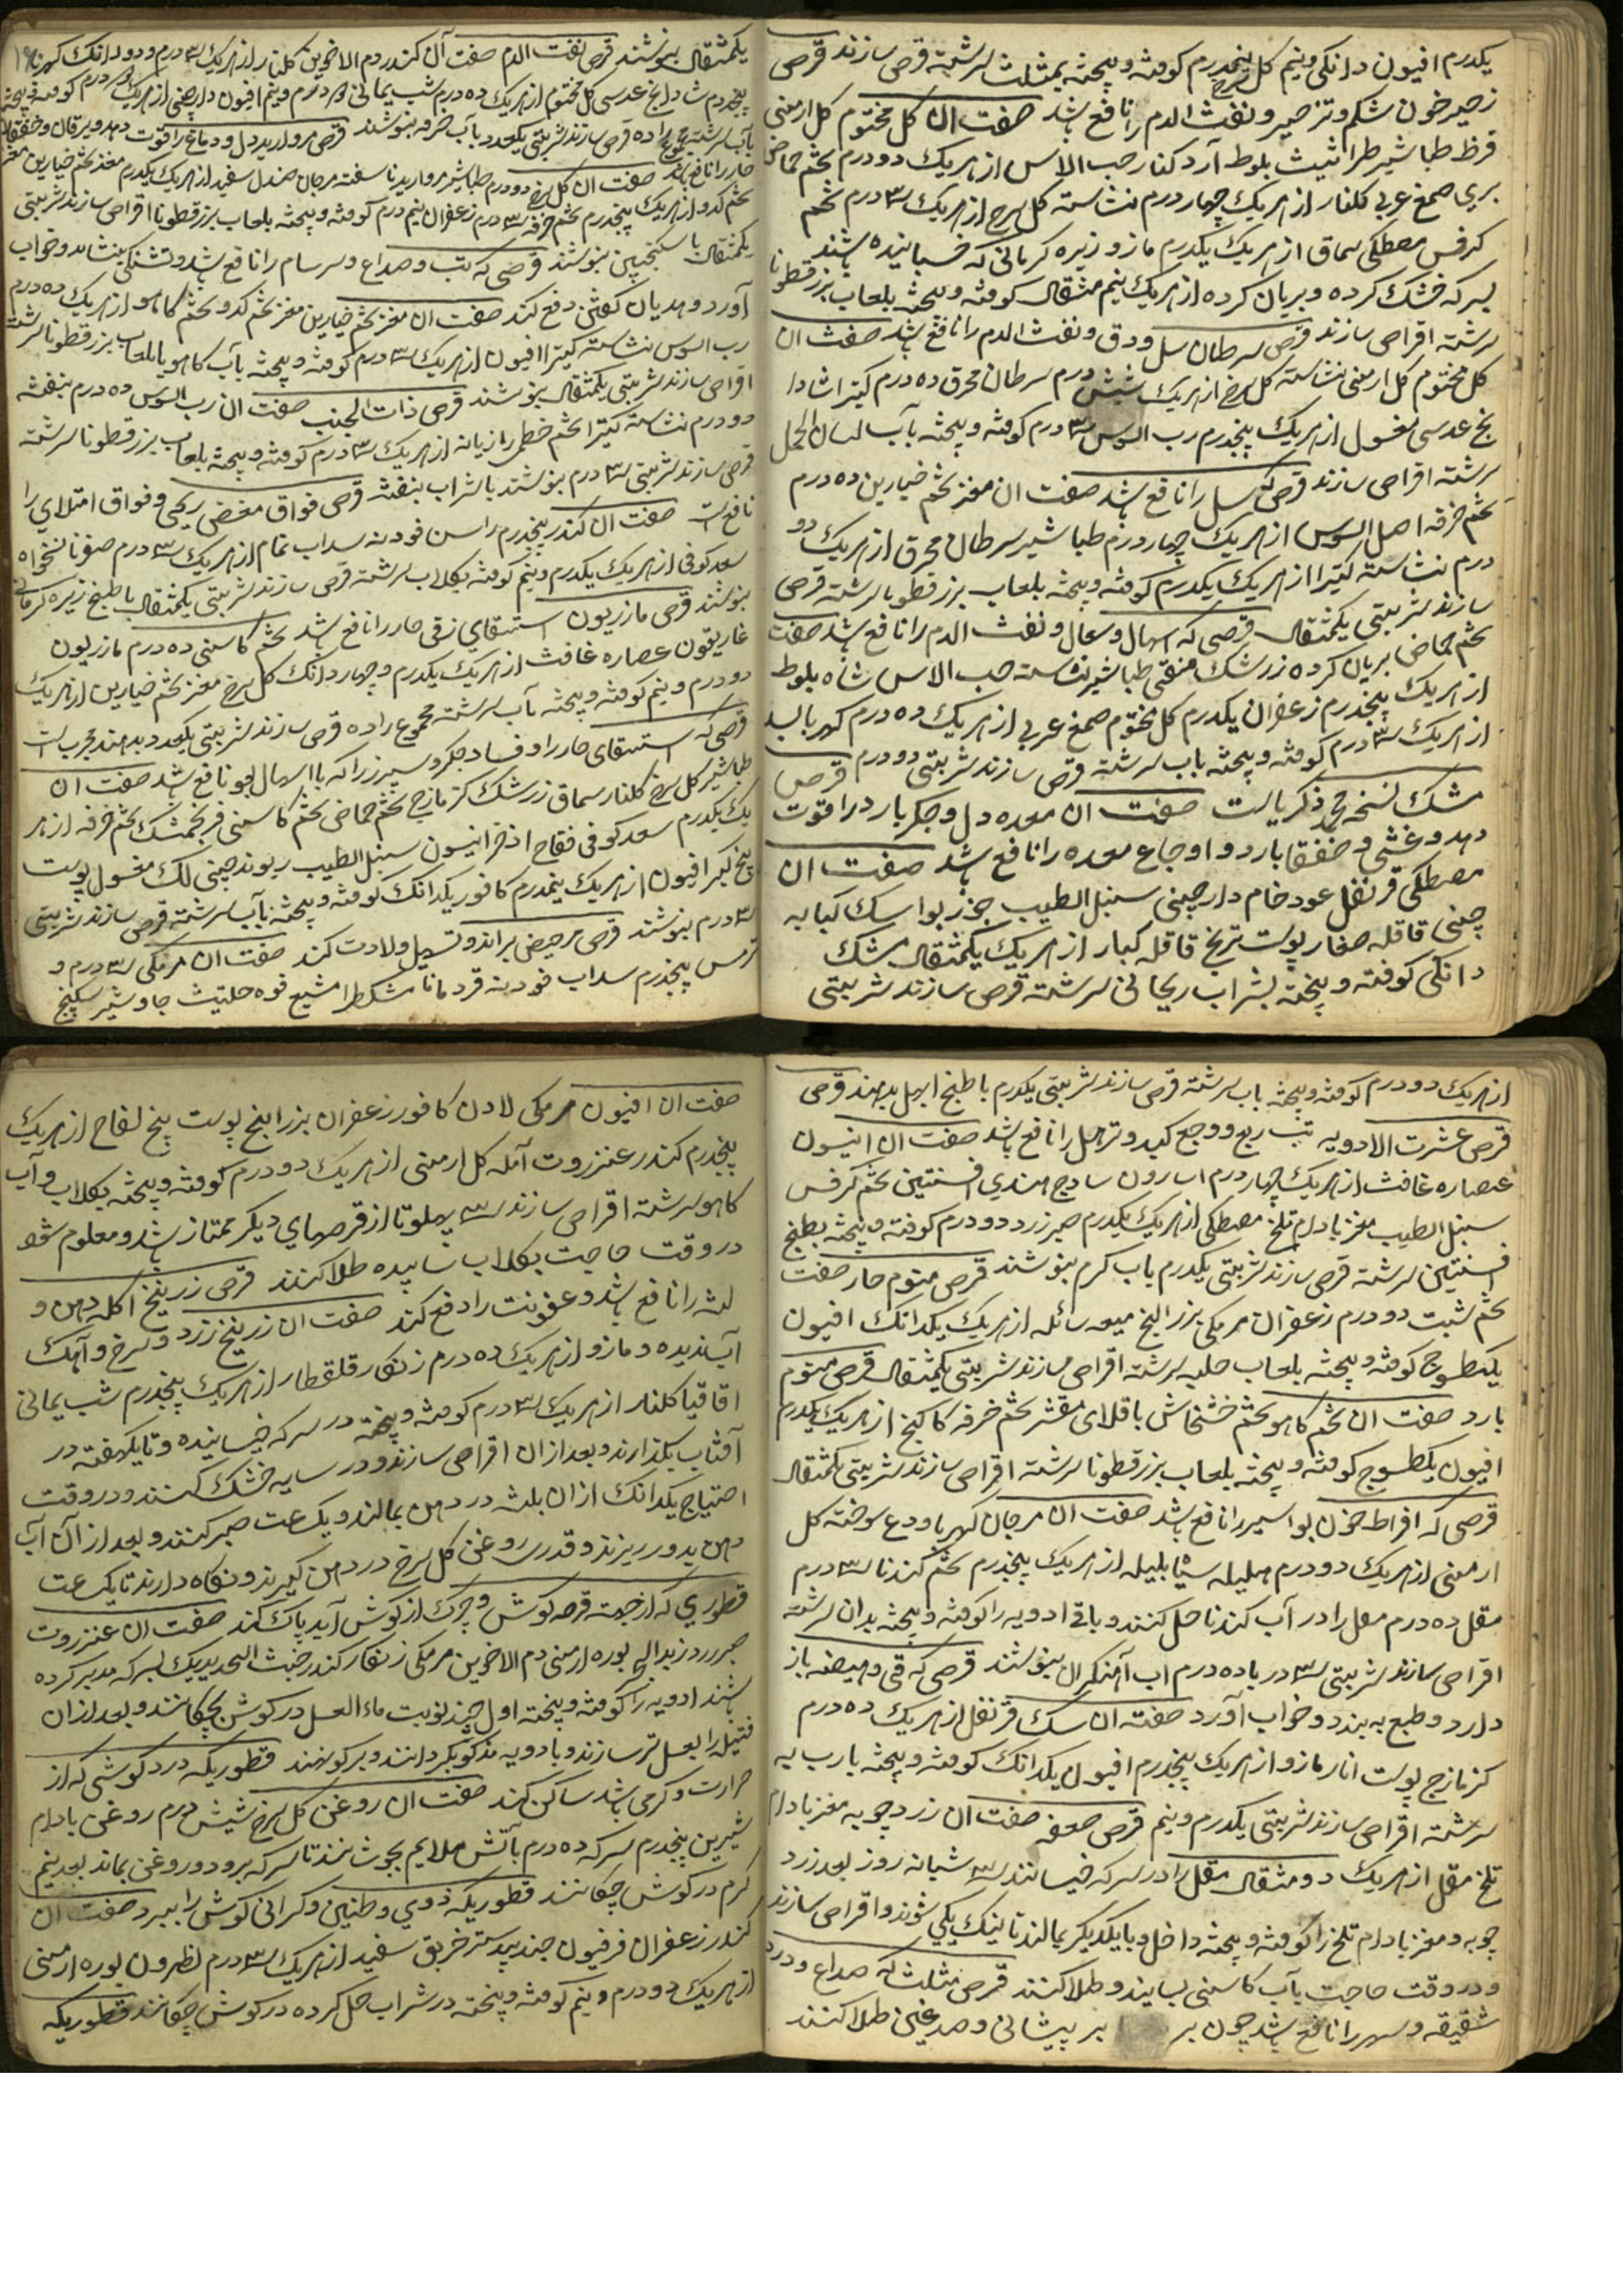 یکدرم افیون دانکی ونیم کل سرخ پنجدرم کوفته و بیخته بمثلث سرشته قرص سازند قرص
زحیر خون شکم وتزحیر و نفث الدم را نافع باشد صفت ان کل مختوم کل ارمنی
قرظ طباشیر طراثیث بلوط آرد کنار حب الاس از هریک دودرم تخم حماض
بری صمغ عربی کلنار از هریک چهاردرم نشاسته کل سرخ از هریک ۳ درم تخم
کرفس مصطکی سماق از هریک یکدرم مازو زیره کرمانی که خسبانیده باشند
بسرکه خشک کرده و بریان کرده از هریک نیم مثقال کوفته و بیخته بلعاب بزرقطونا
سرشته اقراص سازند قرص سرطان سل ودق ونفث الدم را نافع باشد صفت ان
کل مختوم کل ارمنی نشاسته کل سرخ از هریک شش درم سرطان محرق ده درم کتیرا شادا
نج عدسی مغسول از هریک پنجدرم رب السوس ۳ درم کوفته و بیخته بآب لسان الحمل
سرشته اقراص سازند قرص که سل را نافع باشد صفت ان مغز تخم خیارین ده درم
تخم خرفه اصل السوس از هریک چهاردرم طباشیر سرطان محرق از هریک دو
درم نشاسته کتیرا از هریک یکدرم کوفته و بیخته بلعاب بزرقطونا سرشته قرص
سازند شربتی یکمثقال قرصی که اسهال وسعال ونفث الدم را نافع باشد صفت
تخم حماض بریان کرده زرشک منقی طباشیر نشاسته حب الاس شاه بلوط
از هریک پنجدرم زعفران یکدرم کل مختوم صمغ عربی از هریک ده درم کهربا لسد
از هریک ۳ درم کوفته و بیخته باب سرشته قرص سازند شربتی دودرم قرص
مشک نسخه محمد ذکریاست صفت ان معده دل وجکر بارد را قوت
دهد و غشی و خفقا بارد و اوجاع معده را نافع باشد صفت ان
مصطکی قرنفل عود خام دارچینی سنبل الطیب جوز بوا سک کبابه
چینی قاقله صغار پوست ترنج قاقله کبار از هریک یکمثقال مشک
دانکی کوفته و بیخته بشراب ریحانی سرشته قرص سازند شربتی
یکمثقال بنوشند قرص نفث الدم صفت آن کندر دم الاخوین کلنار از هریک ۳ درم و دو دانک کهربا
پنجدرم شادانج عدسی کل مختوم از هریک ده درم شب یمانی درم ونیم افیون دارچینی از هریک درم کوفته بیخته
بآب سرشته مجموع را ده قرص سازند شربتی یکعدد بآب خرفه بنوشند قرص مروارید دل و دماغ را قوت دهد و یرقان وخفقان
حار را نافع باشد صفت ان کل سرخ دودرم طباشیر مروارید ناسفته مرجان صندل سفید از هریک یکدرم مغز تخم خیارین مغز
تخم کدو از هریک پنجدرم تخم خرفه ۳ درم زعفران نیم درم کوفته و بیخته بلعاب بزرقطونا اقراص سازند شربتی
یکمثقال با سکنجبین بنوشند قرصی که تب و صداع و سرسام را نافع باشد وتشنکی بنشاند وخواب
آورد وهدیان کفتن دفع کند صفت ان مغز تخم خیارین مغز تخم کدو تخم کاهو از هریک ده درم
رب السوس نشاسته کتیرا افیون از هریک ۳ درم کوفته و بیخته بآب کاهو یا بلعاب بزرقطونا سرشته
اقراص سازند شربتی یکمثقال بنوشند قرص ذات الجنب صفت ان رب السوس ده درم بنفشه
دو درم نشاسته کتیرا تخم خطمی رازیانه از هریک ۳ درم کوفته و بیخته بلعاب بزرقطونا سرشته
قرص سازند شربتی ۳ درم بنوشند با شراب بنفشه قرص فواق مغص ریحی وفواق امتلای را
نافع است صفت ان کندر پنجدرم راسن فودنه سداب تمام از هریک ۳ درم صغو نانخواه
سعد کوفی از هریک یکدرم ونیم کوفته بکلاب سرشته قرص سازند شربتی یکمثقال با طبخ زیره کرمانی
بنوشند قرص مازریون استسقای زقی حار را نافع باشد تخم کاسنی ده درم مازریون
غاریقون عصاره غافث از هریک یکدرم وچهاردانک کل سرخ مغز تخم خیارین از هریک
دودرم ونیم کوفته و بیخته بآب سرشته مجموع را ده قرص سازند شربتی یکعدد بدهند مجرب است
قرصی که استسقای حار را و فساد جکر و سپرز را که با اسهال بود نافع باشد صفت ان
طباشیر کل سرخ کلنار سماق زرشک کزمازج تخم حماض تخم کاسنی فرنجمشک تخم خرفه از هر
یک یکدرم سعد کوفی فقاح اذخر انیسون سنبل الطیب ریوند چینی لک مغسول پوست
بیخ کبر افیون از هریک نیمدرم کافور یکدانک کوفته و بیخته بآب سرشته قرص سازند شربتی
۳ درم بنوشند قرص مر حیض براند و تسهیل ولادت کند صفت ان مر مکی ۳ درم و
ترمس پنجدرم سداب فودینه قردمانا مشکطرا مشیع فوه حلتیث جاوشیر سکبینج
از هریک دودرم کوفته و بیخته باب سرشته قرص سازند شربتی یکدرم با طبخ ابهل بدهند قرص
قرص عشرت الادویه تب ربع ووجع کبد و ترهل را نافع باشد صفت ان انیسون
عصاره غافث از هریک چهاردرم اسارون سادج هندی افسنتین تخم کرفس
سنبل الطیب مغز بادام تلخ مصطکی از هریک یکدرم صبر زرد دودرم کوفته و بیخته بطبخ
افسنتین سرشته قرص سازند شربتی یکدرم باب کرم بنوشند قرص منوم حار صفت
تخم شبت دودرم زعفران مر مکی بزر البنج میعه سائله از هریک یکدانک افیون
یکطسوج کوفته و بیخته بلعاب حلبه سرشته اقراص سازند شربتی یکمثقال قرص منوم
بارد صفت ان تخم کاهو تخم خشخاش باقلای مقشر تخم خرفه کاکنج از هریک یکدرم
افیون یکطسوج کوفته و بیخته بلعاب بزرقطونا سرشته اقراص سازند شربتی یکمثقال
قرصی که افراط خون بواسیر را نافع باشد صفت ان مرجان کهربا ودع سوخته کل
ارمنی از هریک دودرم هلیله سیاه بلیله از هریک پنجدرم تخم کندنا ۳ درم
مقل ده درم مقل را در آب کندنا حل کنند و باقی ادویه را کوفته و بیخته بدان سرشته
اقراص سازند شربتی ۳ درم با ده درم اب آهنکران بنوشند قرصی که قی وهیضه باز
دارد وطبع به بندد وخواب آورد صفت ان سک قرنفل از هریک ده درم
کزمازج پوست انار مازو از هریک پنجدرم افیون یکدانک کوفته و بیخته بارب به
سرشته اقراص سازند شربتی یکدرم ونیم قرص صعفه صفت ان زردچوبه مغز بادام
تلخ مقل از هریک دومثقال مقل را در سرکه خیسانند ۳ شبانه روز بعد زرد
چوبه و مغز بادام تلخ را کوفته و بیخته داخل و بایکدیکر بمالند تا نیک یکی شوند و اقراص سازند
ودر وقت حاجت بآب کاسنی بسایند وطلا کنند قرص مثلث که صداع ودرد
شقیقه و سهر را نافع باشد چون بر بر پیشانی و صدغین طلا کنند
صفت ان افیون مر مکی لادن کافور زعفران بزر البنج پوست بیخ لفاح از هریک
پنجدرم کندر عنزروت آمله کل ارمنی از هریک دودرم کوفته و بیخته بکلاب وآب
کاهو سرشته اقراص سازند ۳ پهلو تا از قرصهای دیکر ممتاز باشد ومعلوم شود
در وقت حاجت بکلاب ساییده طلا کنند قرص زرنیخ اکله دهن و
لثه را نافع باشد و عفونت را دفع کند صفت ان زرنیخ زرد و سرخ و آهک
آب ندیده و مازو از هریک ده درم زنکار قلقطار از هریک پنجدرم شب یمانی
اقاقیا کلنار از هریک ۳ درم کوفته و بیخته در سرکه خیسانیده وتا یکهفته در
آفتاب بکذارند و بعد ازان اقراص سازند و در سایه خشک کنند و در وقت
احتیاج یکدانک ازان بلثه در دهن بمالند و یک ساعت صبر کنند و بعد از آن آب
دهن بدور ریزند و قدری روغن کل سرخ در دهن کیرند و نکاه دارند تا یک ساعت
قطوری که از جهت قرحه کوش و چرک از کوش آید پاک کند صفت ان عنزروت
صبر زرد زبد البحر بوره ارمنی دم الاخوین مر مکی زنکار کندر خبث الحدید یک بسرکه مدبر کرده
باشند ادویه را کوفته و بیخته اول چند نوبت ماء العسل در کوش بچکانند و بعد ازان
فتیله را بعسل تر سازند و بادویه مذکور بکردانند و بر کوش نهند قطوریکه درد کوشی که از
حرارت و کرمی باشد ساکن کند صفت ان روغن کل سرخ شیش درم روغن بادام
شیرین پنجدرم سرکه ده درم بآتش ملایم بجوشانند تا سرکه برود و روغن بماند بعد نیم
کرم در کوش چکانند قطوریکه دوی وطنین وکرانی کوش را ببرد صفت ان
کندر زعفران فرفیون جند بیدستر خربق سفید از هریک ۳ درم نطرون بوره ارمنی
از هریک دودرم ونیم کوفته و بیخته در شراب حل کرده در کوش چکانند قطوریکه